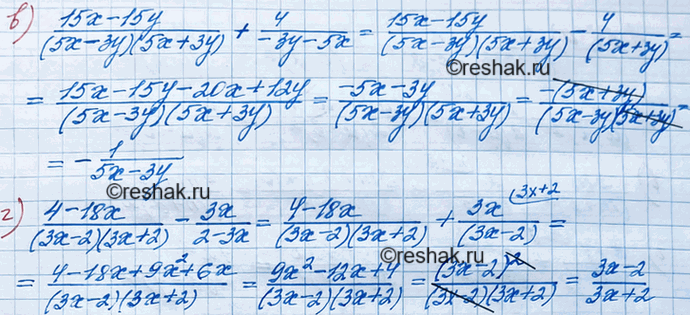 в) (15x-15y)/((5x-3y)(5x+3y)) + 4/(-3y-5x) = (15x-15y)/((5x-3y)(5x+3y)) - 4/(5x+3y) =
©reshak.ru
= (15x-15y-20x+12y)/((5x-3y)(5x+3y)) = (-5x-3y)/((5x-3y)(5x+3y)) = -(5x+3y)/((5x-3y)(5x+3y)) =
©reshak.ru
= - 1/(5x-3y)
©reshak.ru
г) (4-18x)/((3x-2)(3x+2)) - 3x/(2-3x) = (4-18x)/((3x-2)(3x+2)) + 3x/(3x-2) (3x+2 =
= (4-18x+9x²+6x)/((3x-2)(3x+2)) = (9x²-12x+4)/((3x-2)(3x+2)) = (3x-2)²/((3x-2)(3x+2)) = (3x-2)/(3x+2)
©reshak.ru